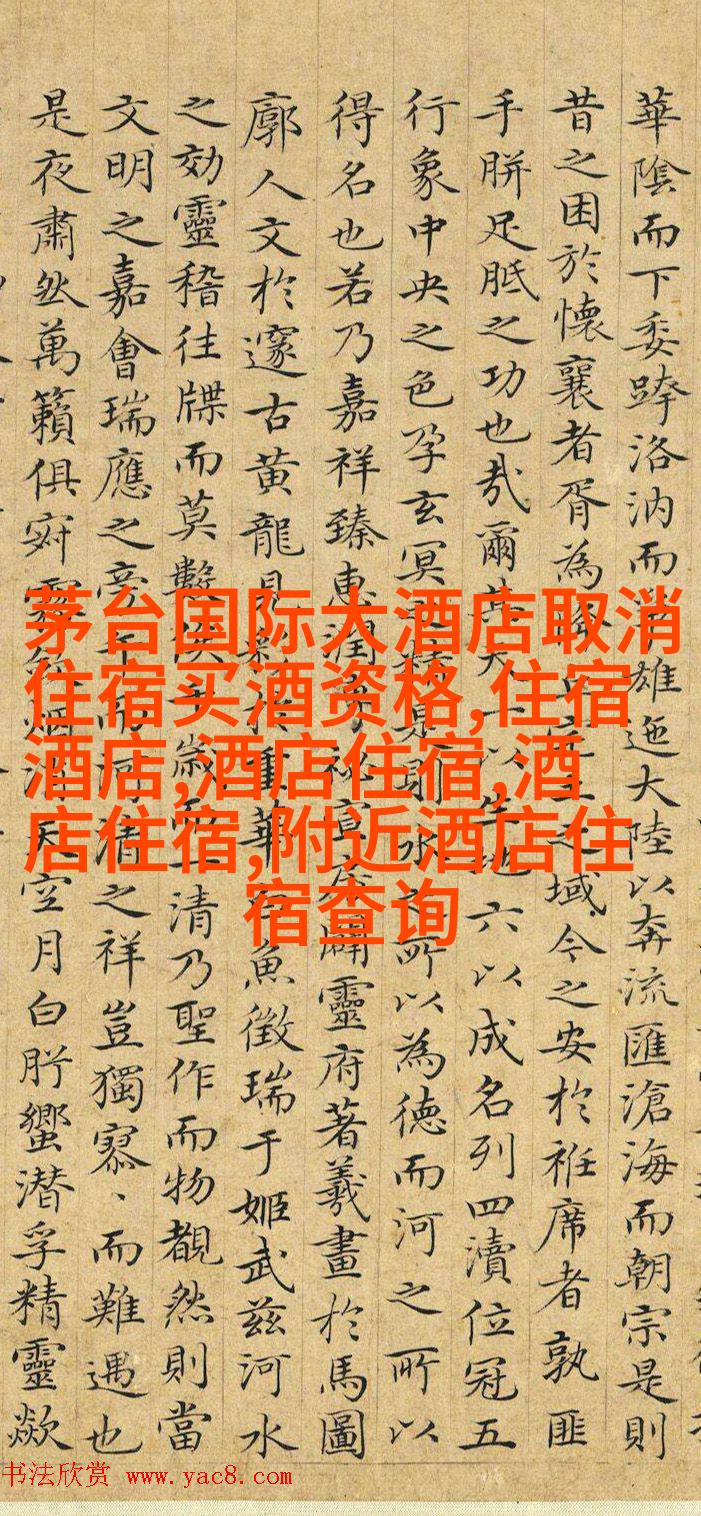 華陰而下委跨洛汭而雄迤大陸以奔流匯滄海而朝宗是則
昔之困於懷襄者胥為之域今之安於袵席者孰匪
手胼足胝之功也哉爾其天一以生地六以成名列四瀆位冠五
行象中央之色孕玄冥之精是則水之所以為德而河之所以
得名也若乃嘉祥臻惠潤祕宣闢靈府著羲畫於馬圖
廓人文於邃古黃龍見彩於重華白魚徵瑞于姬武茲河水
之効靈稽往牒而莫數歲而一清乃聖作而物覩然則當
文明之嘉會瑞應之旁而河清之祥豈獨寡、而難遇也
是夜肅然萬籟俱寂天空月白肸蠁潛孚精靈歘
茅台国际大酒店取消
住宿买酒资格,住宿
酒店,酒店住宿,酒
店住宿,附近酒店住
宿查询
书法欣赏 www.yac8.com